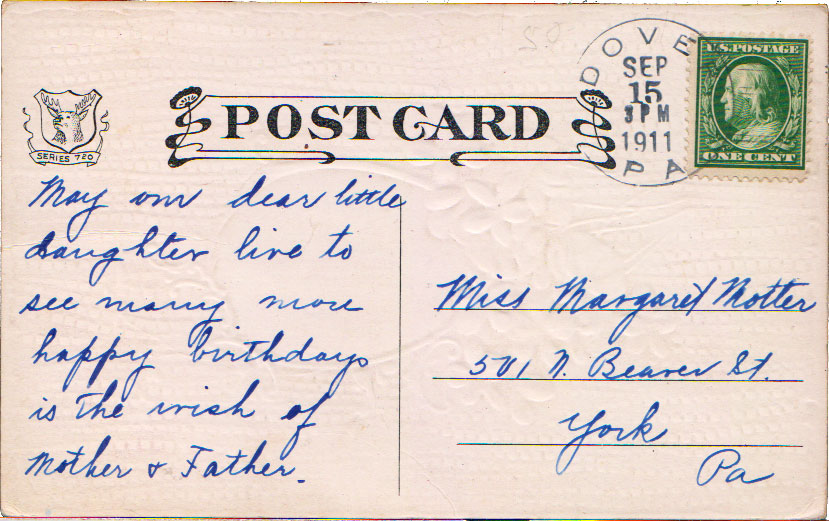 DOVE
SEP
15
3 PM
1911
PA
U.S. POSTAGE
ONE CENT
SERIES 720
POST CARD
May our dear little
daughter live to
see many more
happy birthdays
is the wish of
Mother & Father.
Miss Margaret Motter
501 N. Beaver St.
York
Pa